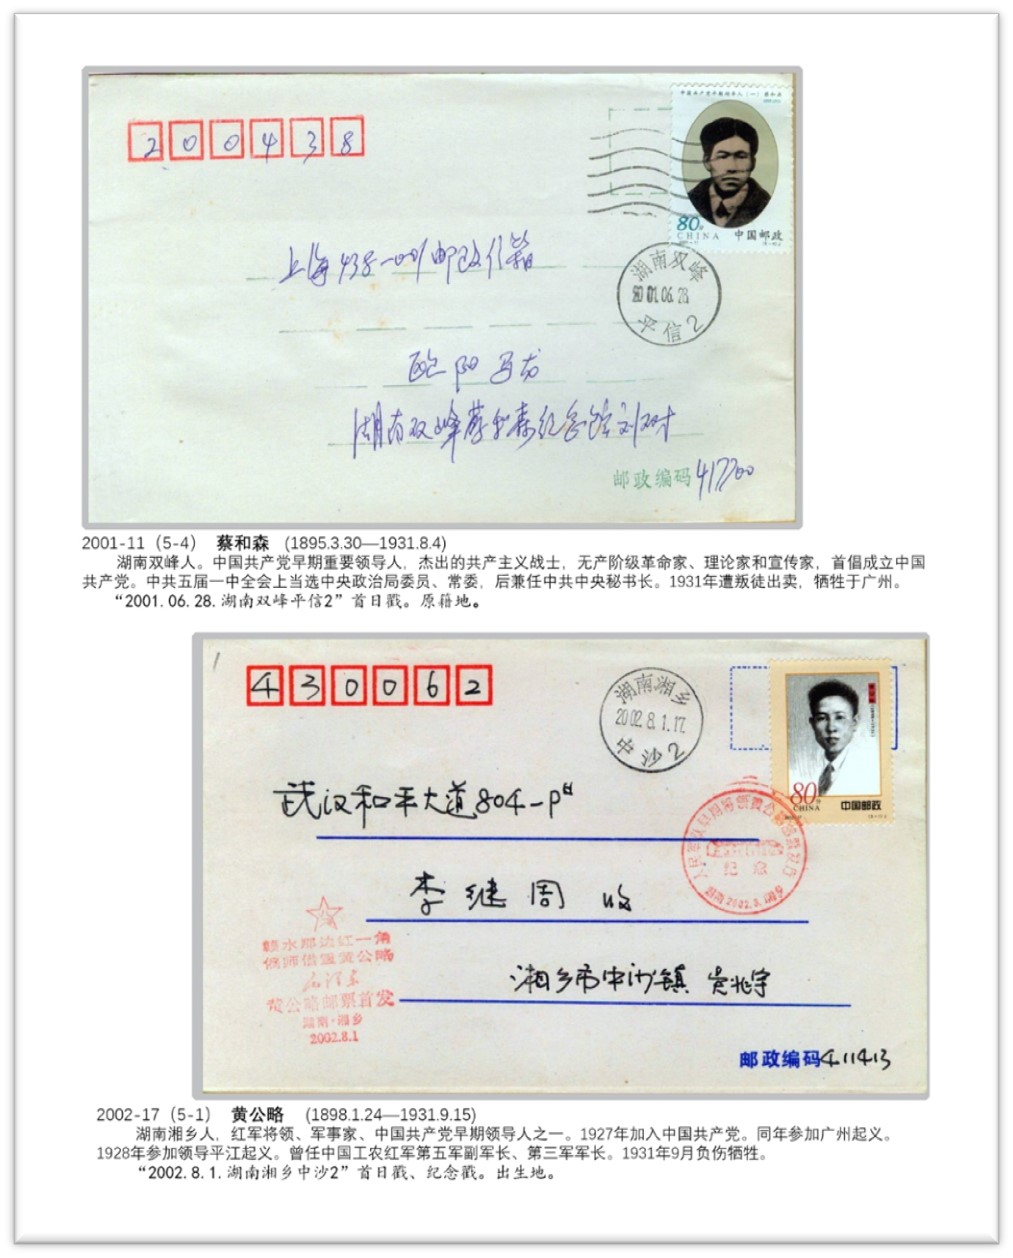 200438
中国共产党早期领导人（一）蔡和森
80分
CHINA 中国邮政
湖南双峰
2001.06.28
平信2
上海438-001邮政信箱
欧阳
湖南双峰蔡和森纪念馆刘
邮政编码417700
2001-11（5-4） 蔡和森 (1895.3.30—1931.8.4)
湖南双峰人。中国共产党早期重要领导人，杰出的共产主义战士，无产阶级革命家、理论家和宣传家，首倡成立中国
共产党。中共五届一中全会上当选中央政治局委员、常委，后兼任中共中央秘书长。1931年遭叛徒出卖，牺牲于广州。
“2001.06.28.湖南双峰平信2”首日戳。原籍地。
430062
湖南湘乡
2002.8.1.17.
中沙2
80分
CHINA 中国邮政
武汉和平大道804-8#
李继周 收
纪念
赣水那边红一角
偏师借重黄公略
毛泽东
黄公略邮票首发
湖南·湘乡
2002.8.1
湘乡市中沙镇
邮政编码411413
2002-17（5-1） 黄公略 (1898.1.24—1931.9.15)
湖南湘乡人，红军将领、军事家、中国共产党早期领导人之一。1927年加入中国共产党。同年参加广州起义。
1928年参加领导平江起义。曾任中国工农红军第五军副军长、第三军军长。1931年9月负伤牺牲。
“2002.8.1.湖南湘乡中沙2”首日戳、纪念戳。出生地。